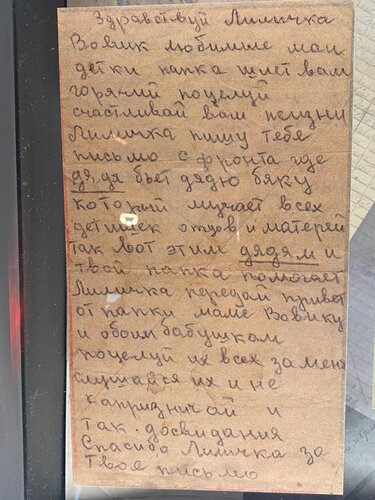 Здравствуй Лиличка
Вовик любимые маи
детки папка шлет вам
горячий поцелуй
счастливай вам жизни
Лиличка пишу тебе
письмо с фронта где
дядя бьет дядю бяку
который мучает всех
детишек отцов и матерей
так вот этим дядям и
твой папка помогает
Лиличка передай привет
от папки маме Вовику
и обоим бабушкам
поцелуй их всех за меня
слушайся их и не
капризничай и
так. досвидания
Спасибо Лиличка за
твое письмо